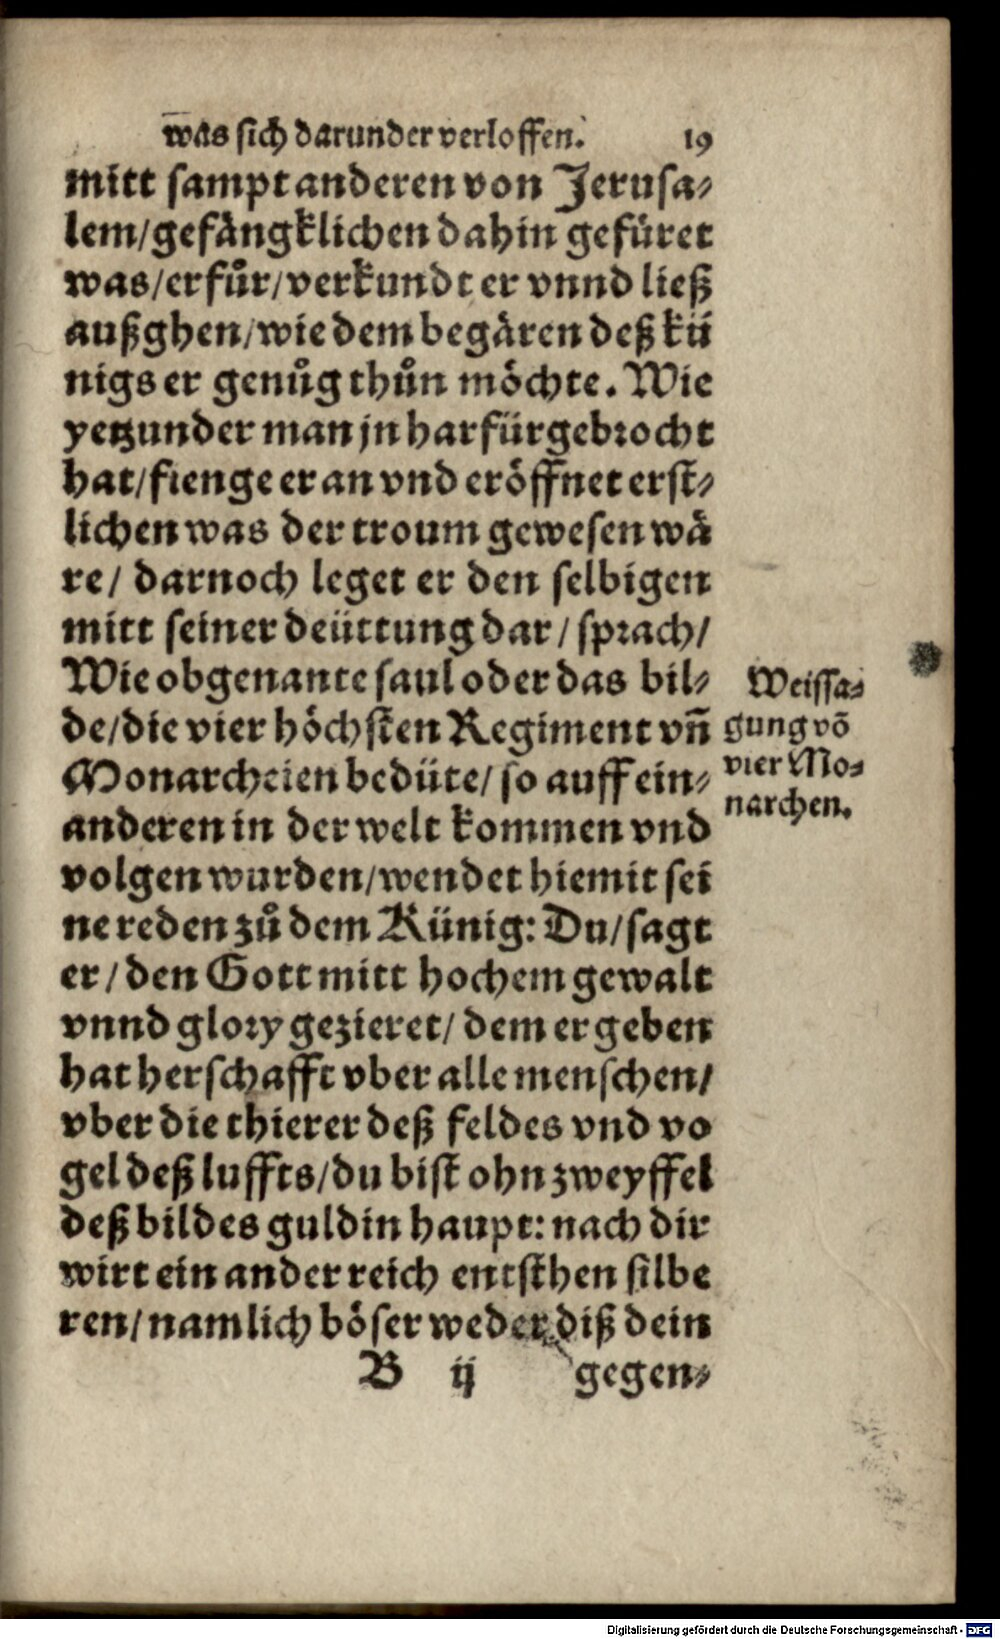 was sich darunder verloffen. 19
mitt sampt anderen von Jerusa⸗
lem/gefängklichen dahin gefüret
was/erfůr/verkundt er vnnd ließ
außghen/wie dem begären deß kü
nigs er genůg thůn möchte. Wie
yetzunder man jn harfür gebrocht
hat/fienge er an vnd eröffnet erst⸗
lichen was der troum gewesen wä
re/ darnoch leget er den selbigen
mitt seiner deüttung dar/ sprach/
Wie obgenante saul oder das bil⸗
de/die vier höchsten Regiment vñ
Monarcheien bedüte/ so auff ein⸗
anderen in der welt kommen vnd
volgen wurden/wendet hiemit sei
ne reden zů dem Künig: Du/sagt
er/ den Gott mitt hochem gewalt
vnnd glory gezieret/ dem er geben
hat herschafft vber alle menschen/
vber die thierer deß feldes vnd vo
gel deß luffts/du bist ohn zweyffel
deß bildes guldin haupt: nach dir
wirt ein ander reich entsthen silbe
ren/namlich böser weder diß dein
B ij gegen⸗
Weissa⸗
gung võ
vier Mo⸗
narchen.
Digitalisierung gefördert durch die Deutsche Forschungsgemeinschaft - DFG